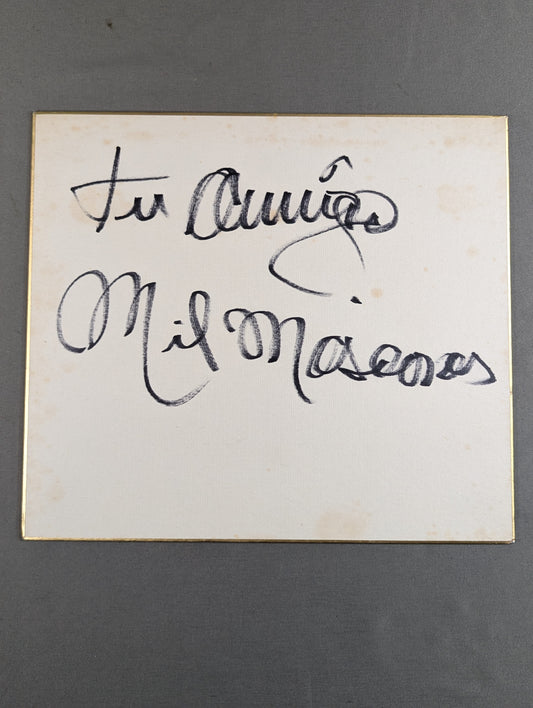 Tu Amigo
Mil Máscaras